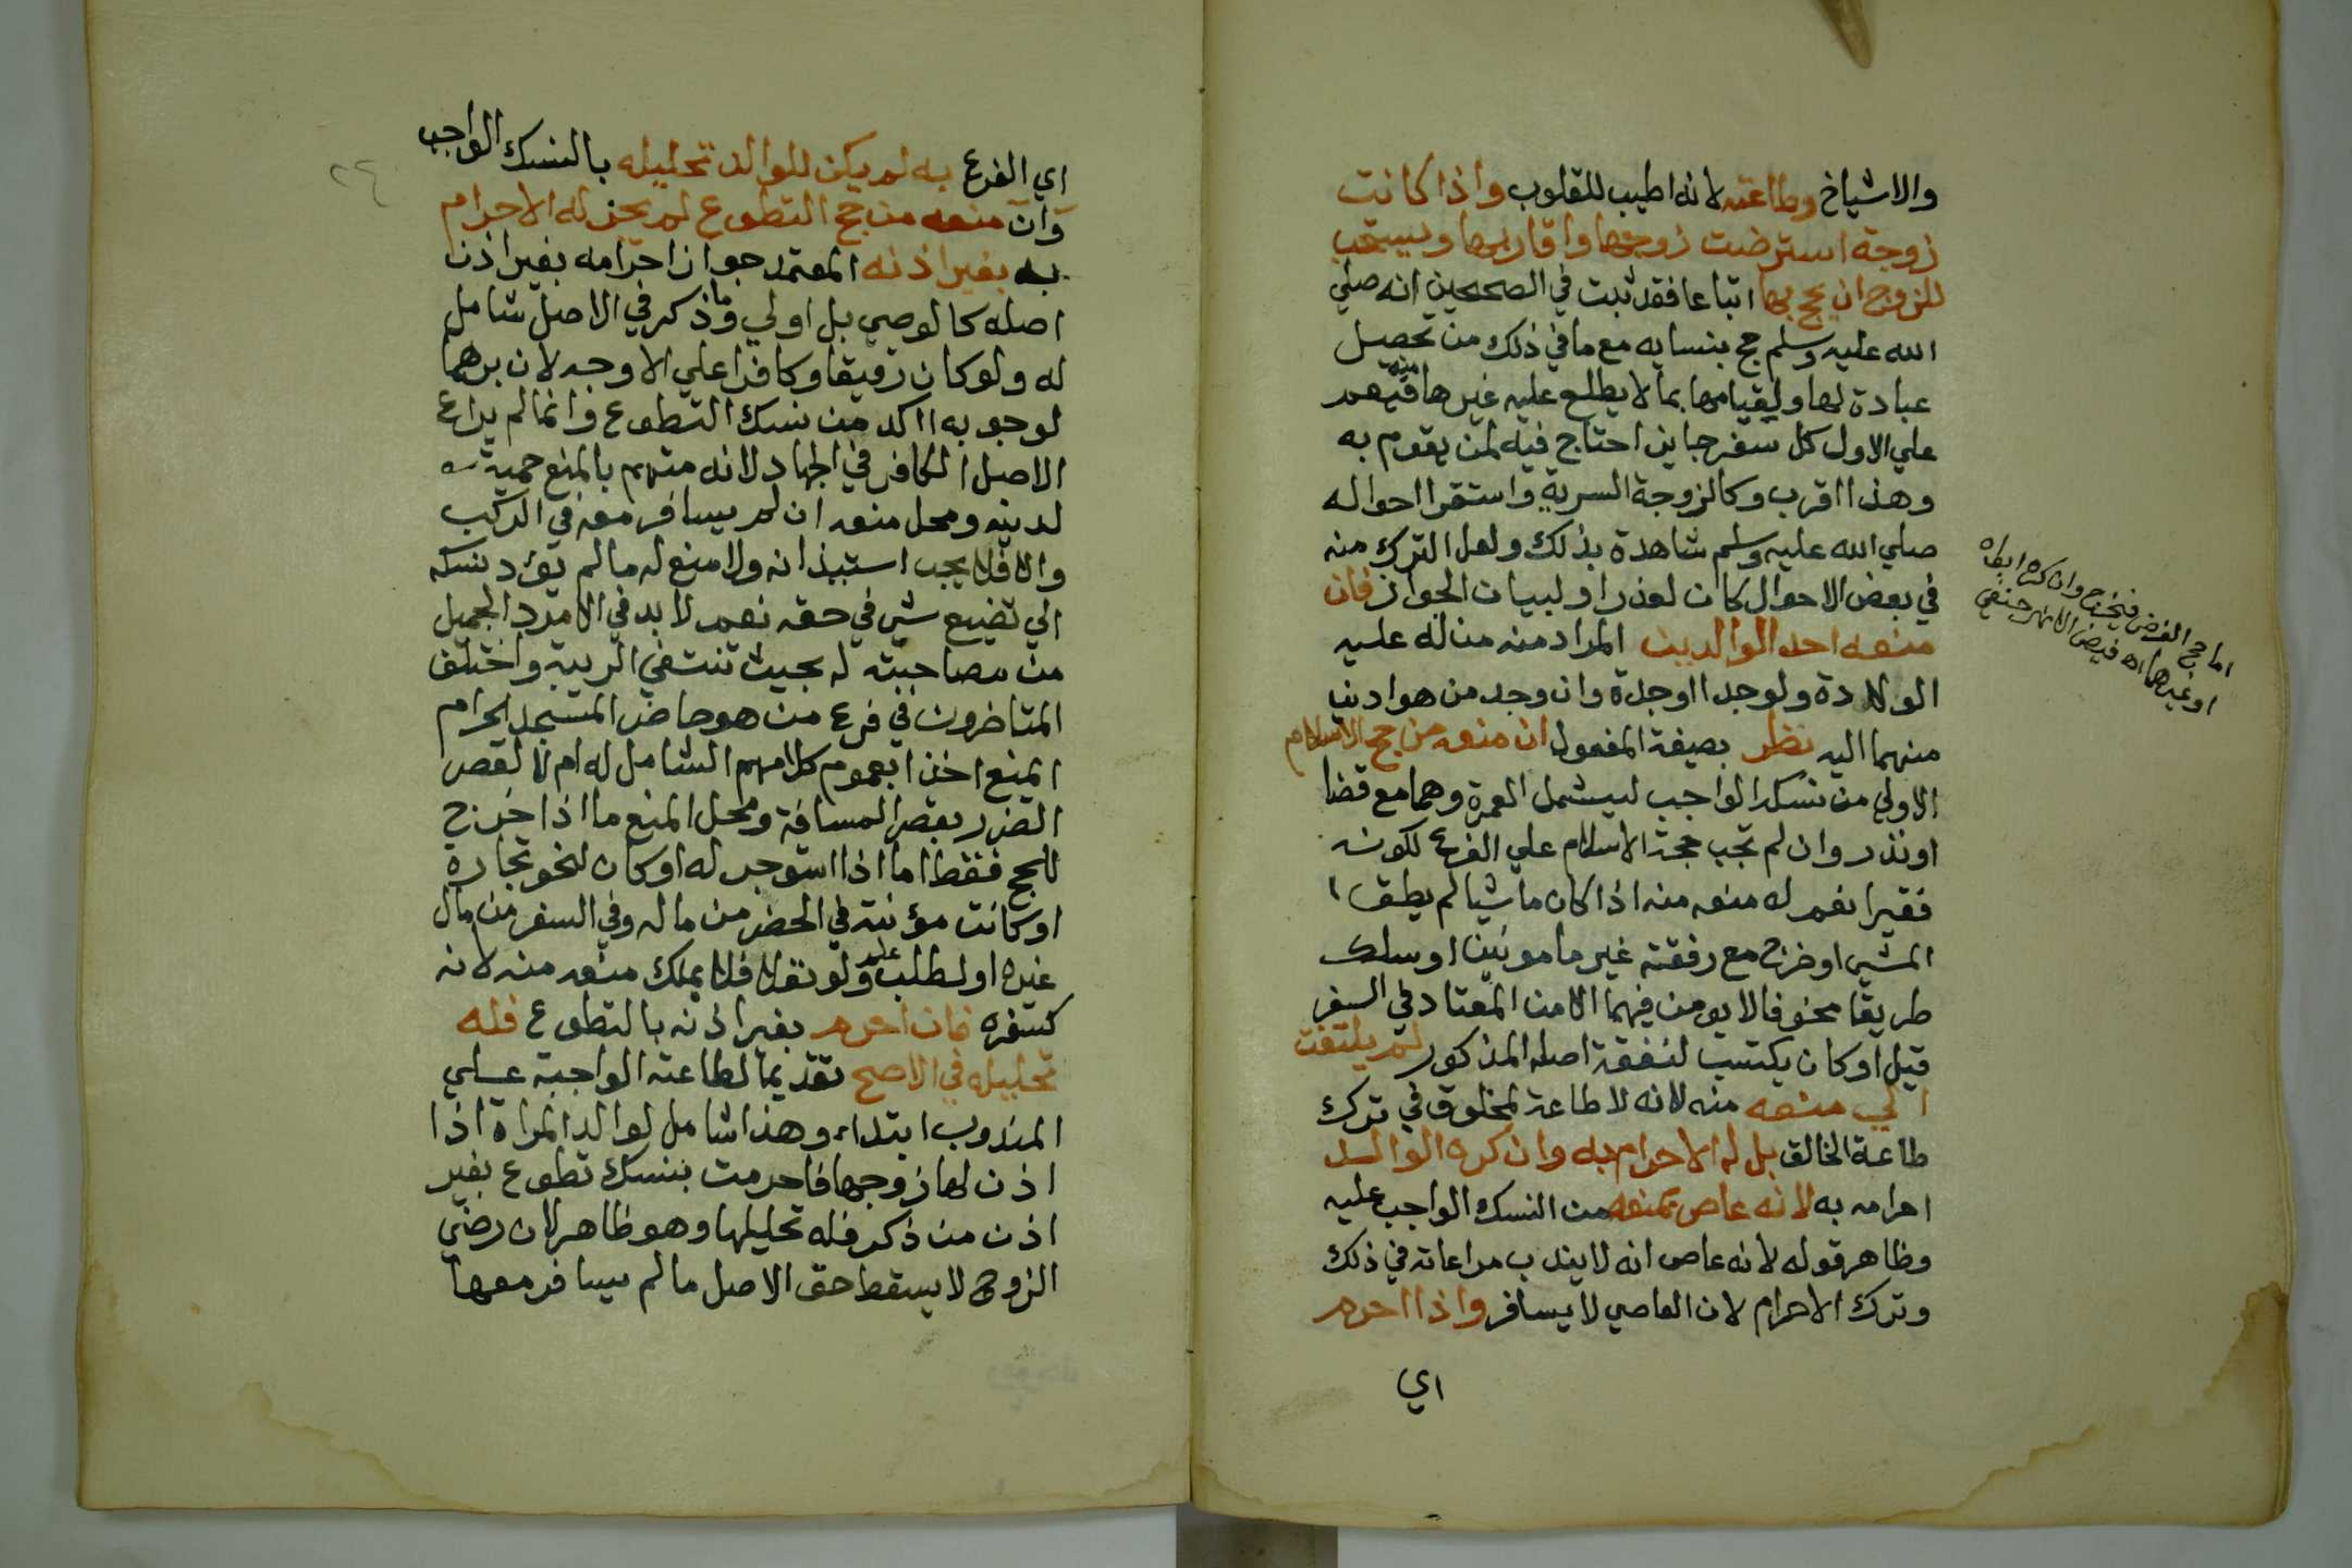 والاشياخ وطاعته لانه اطيب للقلوب واذا كانت
زوجة استرضت زوجها واقاربها ويستحب
للزوج ان يحج بها اتباعا فقد ثبت في الصحيحين انه صلي
الله عليه وسلم حج بنسايه مع ما في ذلك من تحصيل
عبادة لها ولقيامها بما لا يطلع عليه غيرها
علي الاول كل سفر جايز احتاج فيه لمن يقوم به
وهذا اقرب وكالزوجة السرية واستقرا احواله
صلي الله عليه وسلم شاهدة بذلك ولعل الترك منه
في بعض الاحوال كان لعذر او لبيان الجواز فان
منعه احد الوالدين المراد منه من له عليه
الولادة ولو جدا او جدة وان وجد من هو ادني
منهما اليه نظر بصيغة المفعول ان منعه من حج الاسلام
الاولي من نسك الواجب ليشمل العمرة وهما مع قضا
او نذر وان لم تجب حجة الاسلام علي الفرع لكونه
فقيرا نعم له منعه منه اذا كان ماشيا لم يطق
المشي او خرج مع رفقته غير مامونين او سلك
طريقا مخوفا لا يومن فيهما الامن المعتاد في السفر
قيل او كان يكتسب لنفقة اصله المذكور لم يلتفت
الي منعه منه لانه لا طاعة لمخلوق في ترك
طاعة الخالق بل له الاحرام به وان كره الوالد
احرامه به لانه عاص بمنعه من النسك الواجب عليه
وظاهر قوله لانه عاص انه لا يندب مراعاته في ذلك
وترك الاحرام لان العاصي لا يسافر واذا احرم
اي
اما حج الفرض فيخرج وان كره ابواه
او غيرهما اه فيض الانهر حنفي
٢٤
اي الفرع به لم يكن للوالد تحليله بالنسك الواجب
وان منعه من حج التطوع لم يجز له الاحرام
به بغير اذنه المعتمد جواز احرامه بغير اذن
اصله كالوصي بل اولي وما ذكر في الاصل شامل
له ولو كان رقيقا وكافرا علي الاوجه لان برهما
لوجوبه اكد من نسك التطوع وانما لم يراع
الاصل الكافر في الجهاد لانه متهم بالمنع حمية
لدينه ومحل منعه ان لم يسافر معه في الركب
والا فلا يجب استيذانه ولا منع له ما لم يؤد نسكه
الي تضييع شي في حقه نعم لا بد في الامرد الجميل
من مصاحبته له بحيث تنتفي الريبة واختلف
المتاخرون في فرع من هو حاضر المسجد الحرام
المنع اخذا بعموم كلامهم الشامل له ام لا لقصر
الضرر بقصر المسافة ومحل المنع ما اذا خرج
للحج فقط اما اذا استوجر له او كان لنحو تجارة
او كانت مؤنته في الحضر من ماله وفي السفر من مال
غيره او لطلب علم ولو نفلا فلا يملك منعه منه لانه
كسفره فان احرم بغير اذنه بالتطوع فله
تحليله في الاصح تقديما لطاعته الواجبة علي
المندوب ابتداء وهذا شامل لوالد المراة اذا
اذن لها زوجها فاحرمت بنسك تطوع بغير
اذن من ذكر فله تحليلها وهو ظاهر لان رضي
الزوج لا يسقط حق الاصل ما لم يسافر معها